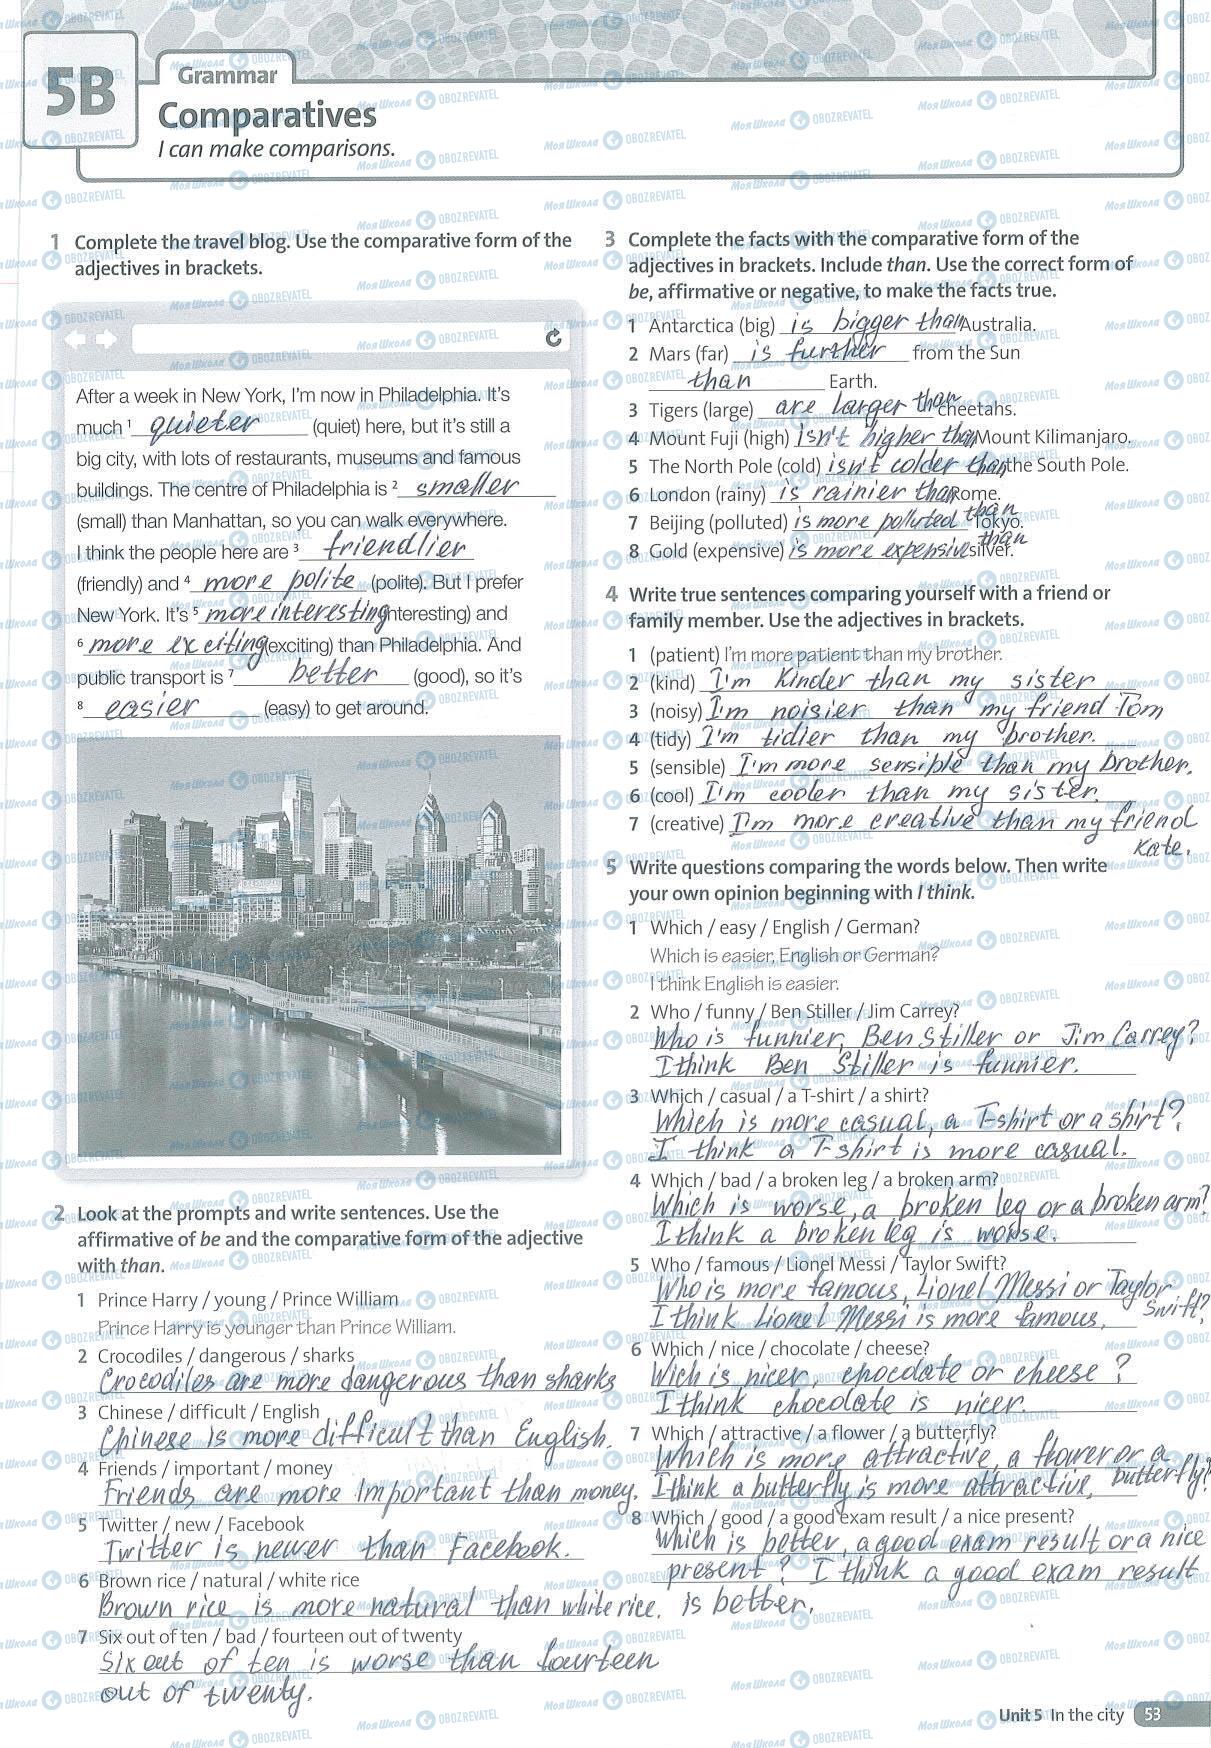 5B
Grammar
Comparatives
I can make comparisons.
1 Complete the travel blog. Use the comparative form of the
adjectives in brackets.
After a week in New York, I'm now in Philadelphia. It's
much 1 quieter (quiet) here, but it's still a
big city, with lots of restaurants, museums and famous
buildings. The centre of Philadelphia is 2 smaller
(small) than Manhattan, so you can walk everywhere.
I think the people here are 3 friendlier
(friendly) and 4 more polite (polite). But I prefer
New York. It's 5 more interesting (interesting) and
6 more exciting (exciting) than Philadelphia. And
public transport is 7 better (good), so it's
8 easier (easy) to get around.
2 Look at the prompts and write sentences. Use the
affirmative of be and the comparative form of the adjective
with than.
1 Prince Harry / young / Prince William
Prince Harry is younger than Prince William.
2 Crocodiles / dangerous / sharks
Crocodiles are more dangerous than sharks
3 Chinese / difficult / English
Chinese is more difficult than English.
4 Friends / important / money
Friends are more important than money.
5 Twitter / new / Facebook
Twitter is newer than Facebook.
6 Brown rice / natural / white rice
Brown rice is more natural than white rice.
7 Six out of ten / bad / fourteen out of twenty
Six out of ten is worse than fourteen
out of twenty.
3 Complete the facts with the comparative form of the
adjectives in brackets. Include than. Use the correct form of
be, affirmative or negative, to make the facts true.
1 Antarctica (big) is bigger than Australia.
2 Mars (far) is further from the Sun
than Earth.
3 Tigers (large) are larger than cheetahs.
4 Mount Fuji (high) isn't higher than Mount Kilimanjaro.
5 The North Pole (cold) isn't colder than the South Pole.
6 London (rainy) is rainier than Rome.
7 Beijing (polluted) is more polluted than Tokyo.
8 Gold (expensive) is more expensive than silver.
4 Write true sentences comparing yourself with a friend or
family member. Use the adjectives in brackets.
1 (patient) I'm more patient than my brother.
2 (kind) I'm kinder than my sister
3 (noisy) I'm noisier than my friend Tom
4 (tidy) I'm tidier than my brother.
5 (sensible) I'm more sensible than my brother.
6 (cool) I'm cooler than my sister.
7 (creative) I'm more creative than my friend
Kate.
5 Write questions comparing the words below. Then write
your own opinion beginning with I think.
1 Which / easy / English / German?
Which is easier, English or German?
I think English is easier.
2 Who / funny / Ben Stiller / Jim Carrey?
Who is funnier, Ben Stiller or Jim Carrey?
I think Ben Stiller is funnier.
3 Which / casual / a T-shirt / a shirt?
Which is more casual, a T-shirt or a shirt?
I think a T-shirt is more casual.
4 Which / bad / a broken leg / a broken arm?
Which is worse, a broken leg or a broken arm?
I think a broken leg is worse.
5 Who / famous / Lionel Messi / Taylor Swift?
Who is more famous, Lionel Messi or Taylor
Swift?
I think Lionel Messi is more famous.
6 Which / nice / chocolate / cheese?
Wich is nicer, chocolate or cheese?
I think chocolate is nicer.
7 Which / attractive / a flower / a butterfly?
Which is more attractive, a flower or a
butterfly?
I think a butterfly is more attractive.
8 Which / good / a good exam result / a nice present?
Which is better, a good exam result or a nice
present? I think a good exam result
is better.
Unit 5 In the city 53
МояШкола OBOZREVATEL